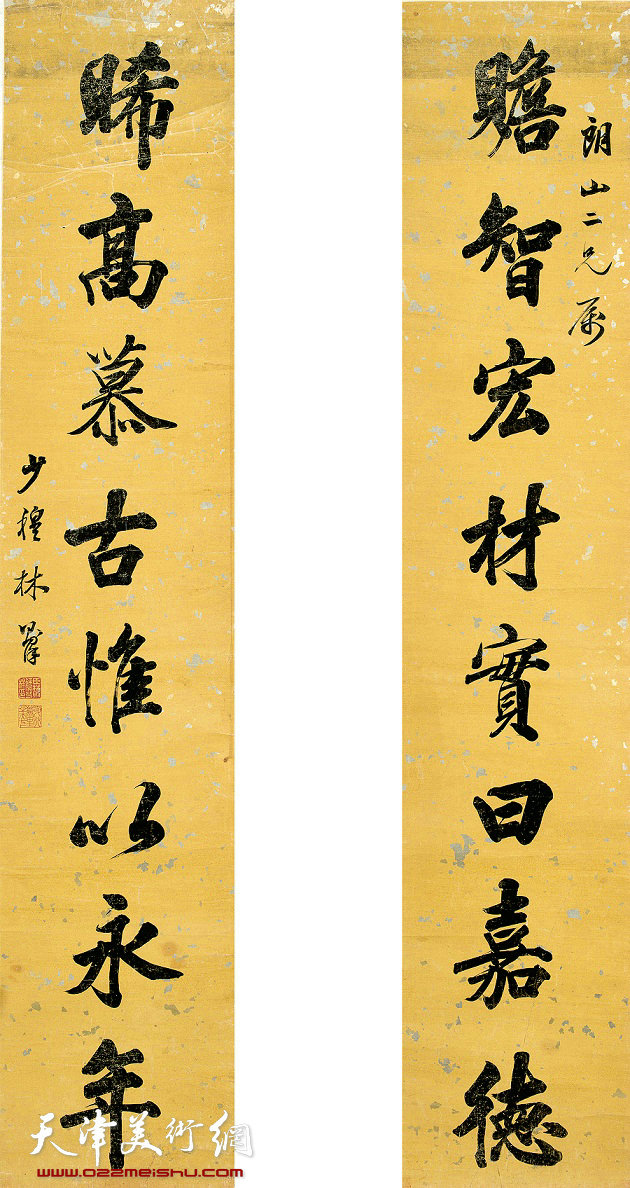 朗山二兄属
贍智宏材實曰嘉德
睎高慕古惟以永年
少穆林
天津美術網
www.022meishu.com